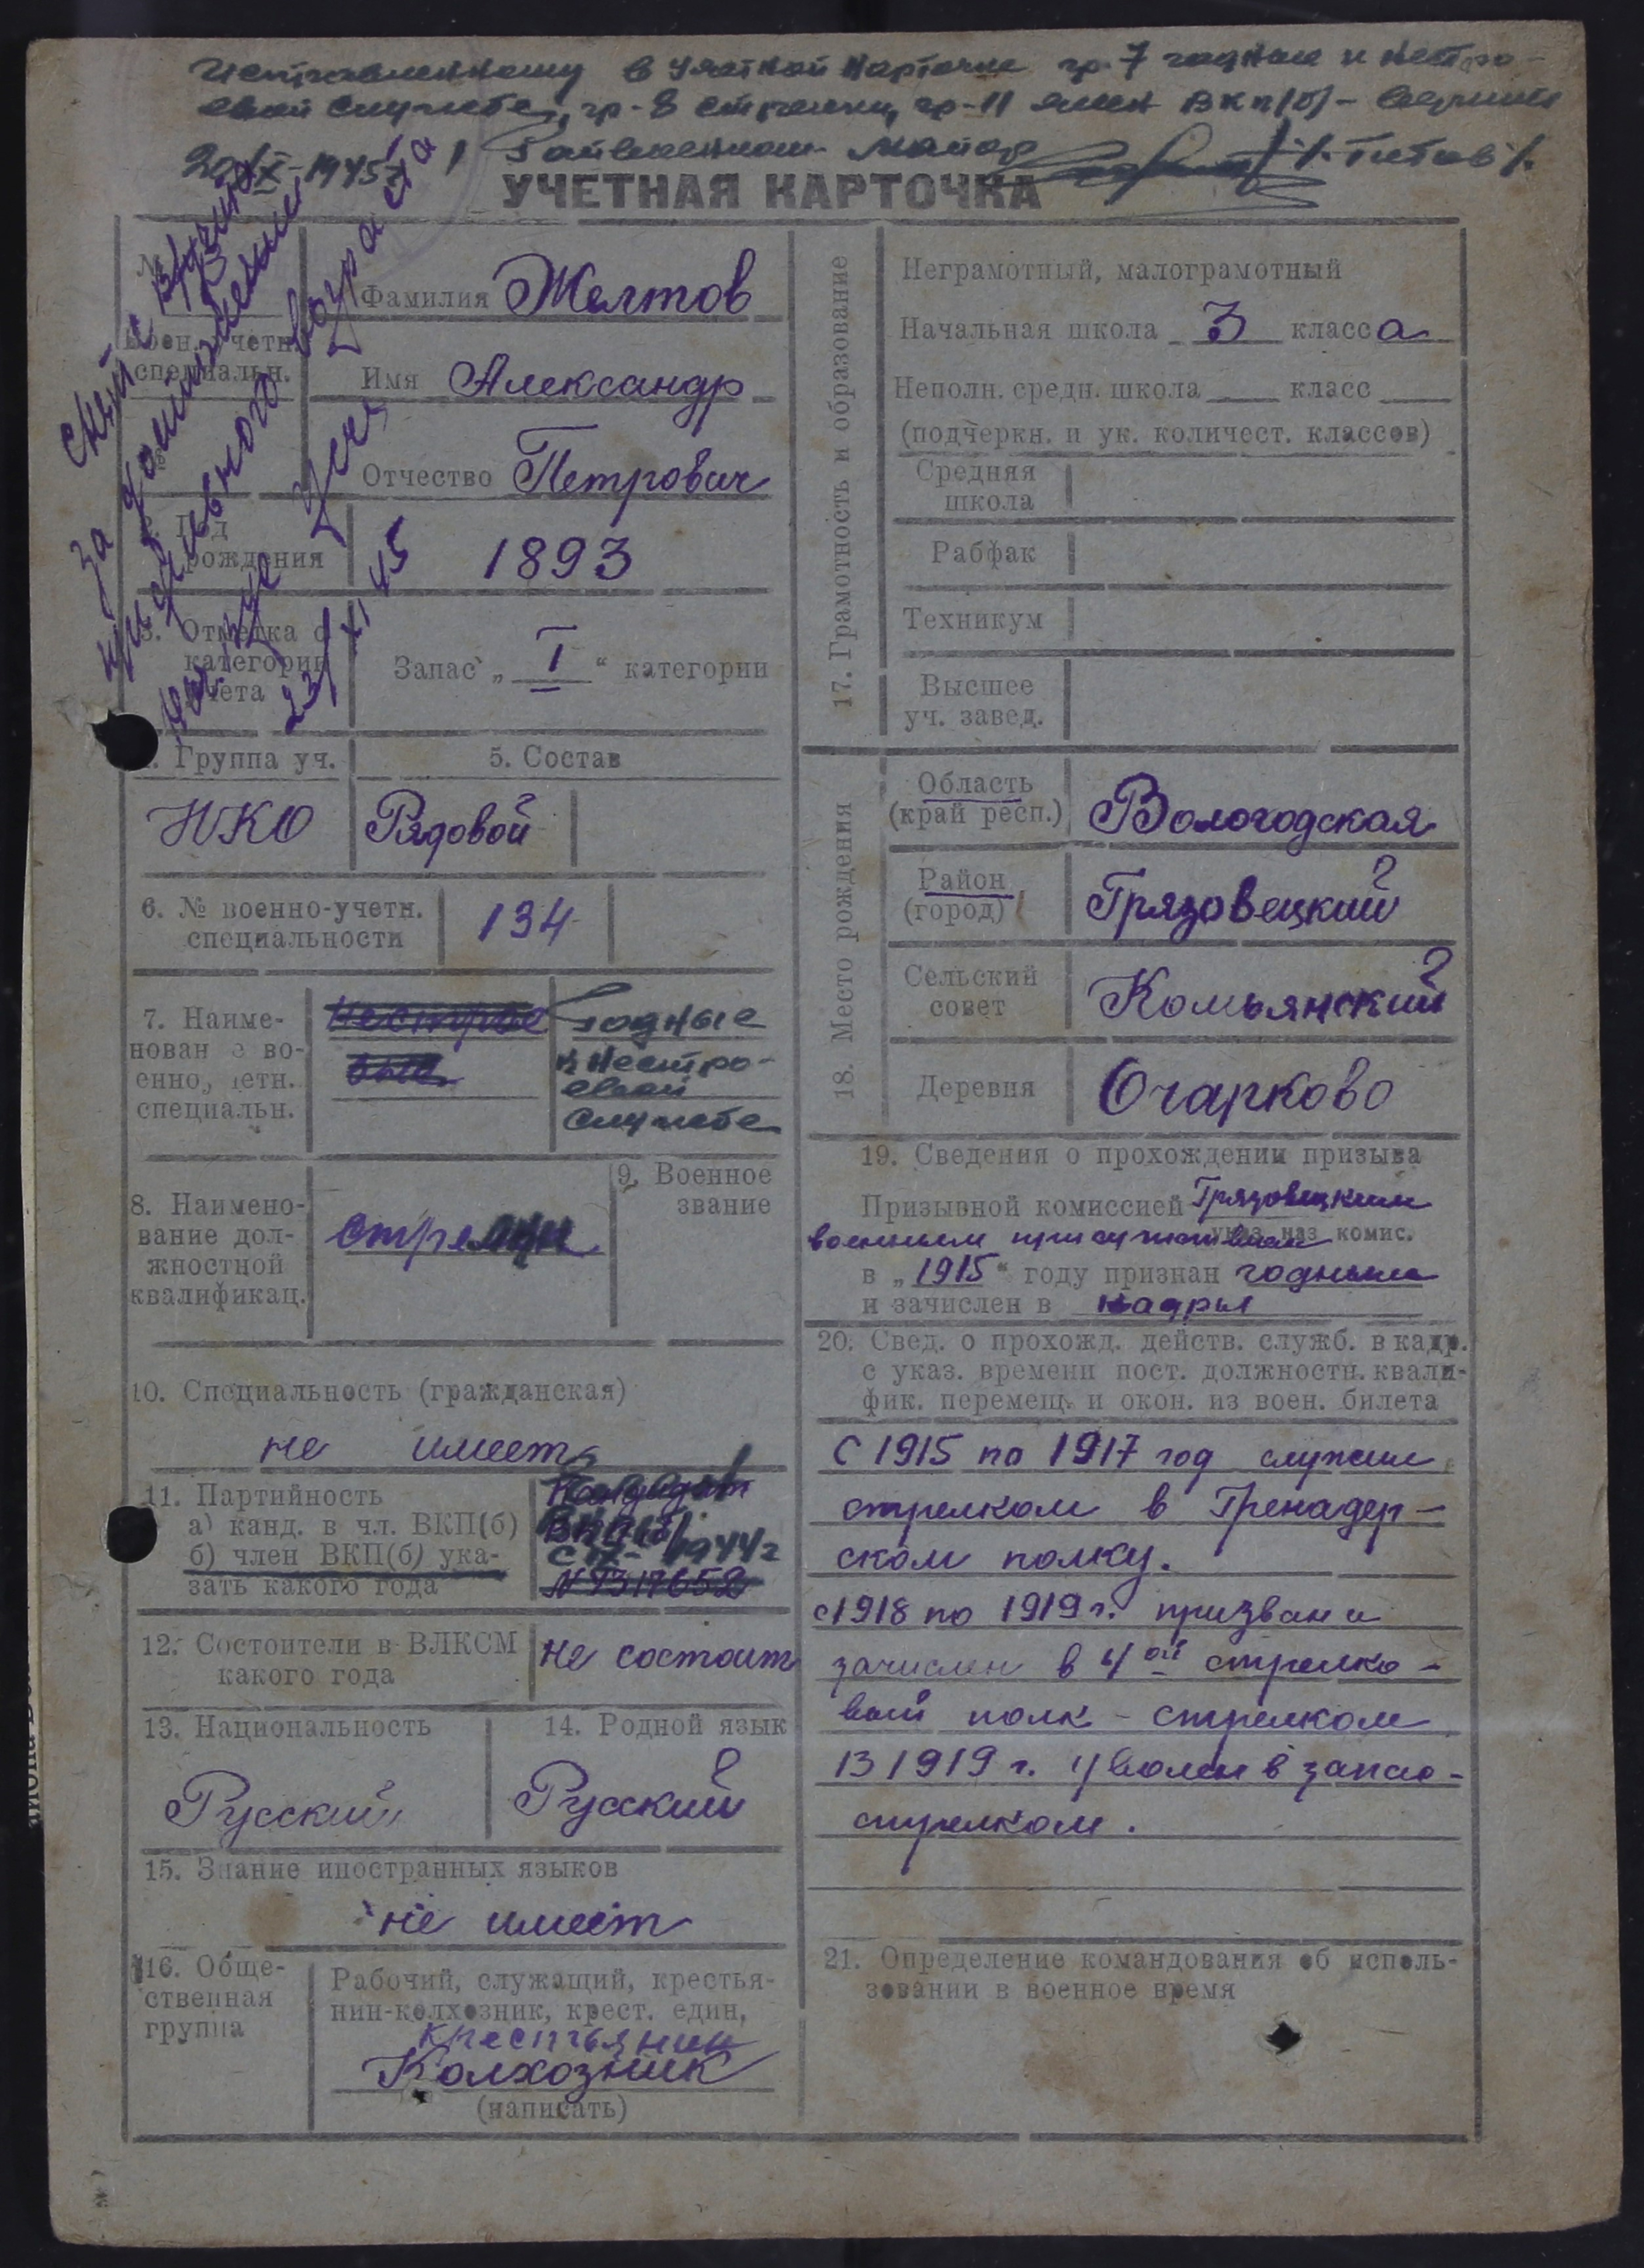 Исправленному в учетной карточке гр. 7 годные к нестро-
евой службе, гр-8 стрелки, гр-11 член ВКП(б) - верить
20/IX-1945г. Райвоенком майор /Титов/.
УЧЕТНАЯ КАРТОЧКА
Снят с
за достижением
предельного возраста
23/XI 45
№
Воен. учетн.
специальн.
Фамилия Желтов
Имя Александр
Отчество Петрович
2. Год
рождения
1893
3. Отметка о
категории
учета
Запас „ I “ категории
4. Группа уч.
5. Состав
НКО
Рядовой
6. № военно-учетн.
специальности
134
7. Наиме-
нован е во-
енно, четн.
специальн.
Нестрое
вые
годные
к нестро-
евой
службе
8. Наимено-
вание дол-
жностной
квалификац.
стрелки
9. Военное
звание
10. Специальность (гражданская)
не имеет
11. Партийность
а) канд. в чл. ВКП(б)
б) член ВКП(б) ука-
зать какого года
Кандидат
ВКП(б)
с IX- 1944г
12. Состоители в ВЛКСМ
какого года
не состоит
13. Национальность
Русский
14. Родной язык
Русский
15. Знание иностранных языков
не имеет
16. Обще-
ственная
группа
Рабочий, служащий, крестья-
нин-колхозник, крест. един,
крестьянин
Колхозник
(написать)
17. Грамотность и образование
Неграмотный, малограмотный
Начальная школа 3 класса
Неполн. средн. школа класс
(подчеркн. и ук. количест. классов)
Средняя
школа
Рабфак
Техникум
Высшее
уч. завед.
18. Место рождения
Область
(край респ.)
Вологодская
Район
(город)
Грязовецкий
Сельский
совет
Комьянский
Деревня
Очарково
19. Сведения о прохождении призыва
Призывной комиссией Грязовецким
военным присутствием
указ. наз. комис.
в „1915“ году признан годным
и зачислен в кадры
20. Свед. о прохожд. действ. служб. в кадр.
с указ. времени пост. должностн. квали-
фик. перемещ. и окон. из воен. билета
С 1915 по 1917 год служил
стрелком в Гренадер-
ском полку.
с 1918 по 1919 г. призван и
зачислен в 4ой стрелко-
вый полк - стрелком
В 1919 г. уволен в запас -
стрелком.
21. Определение командования об исполь-
зовании в военное время